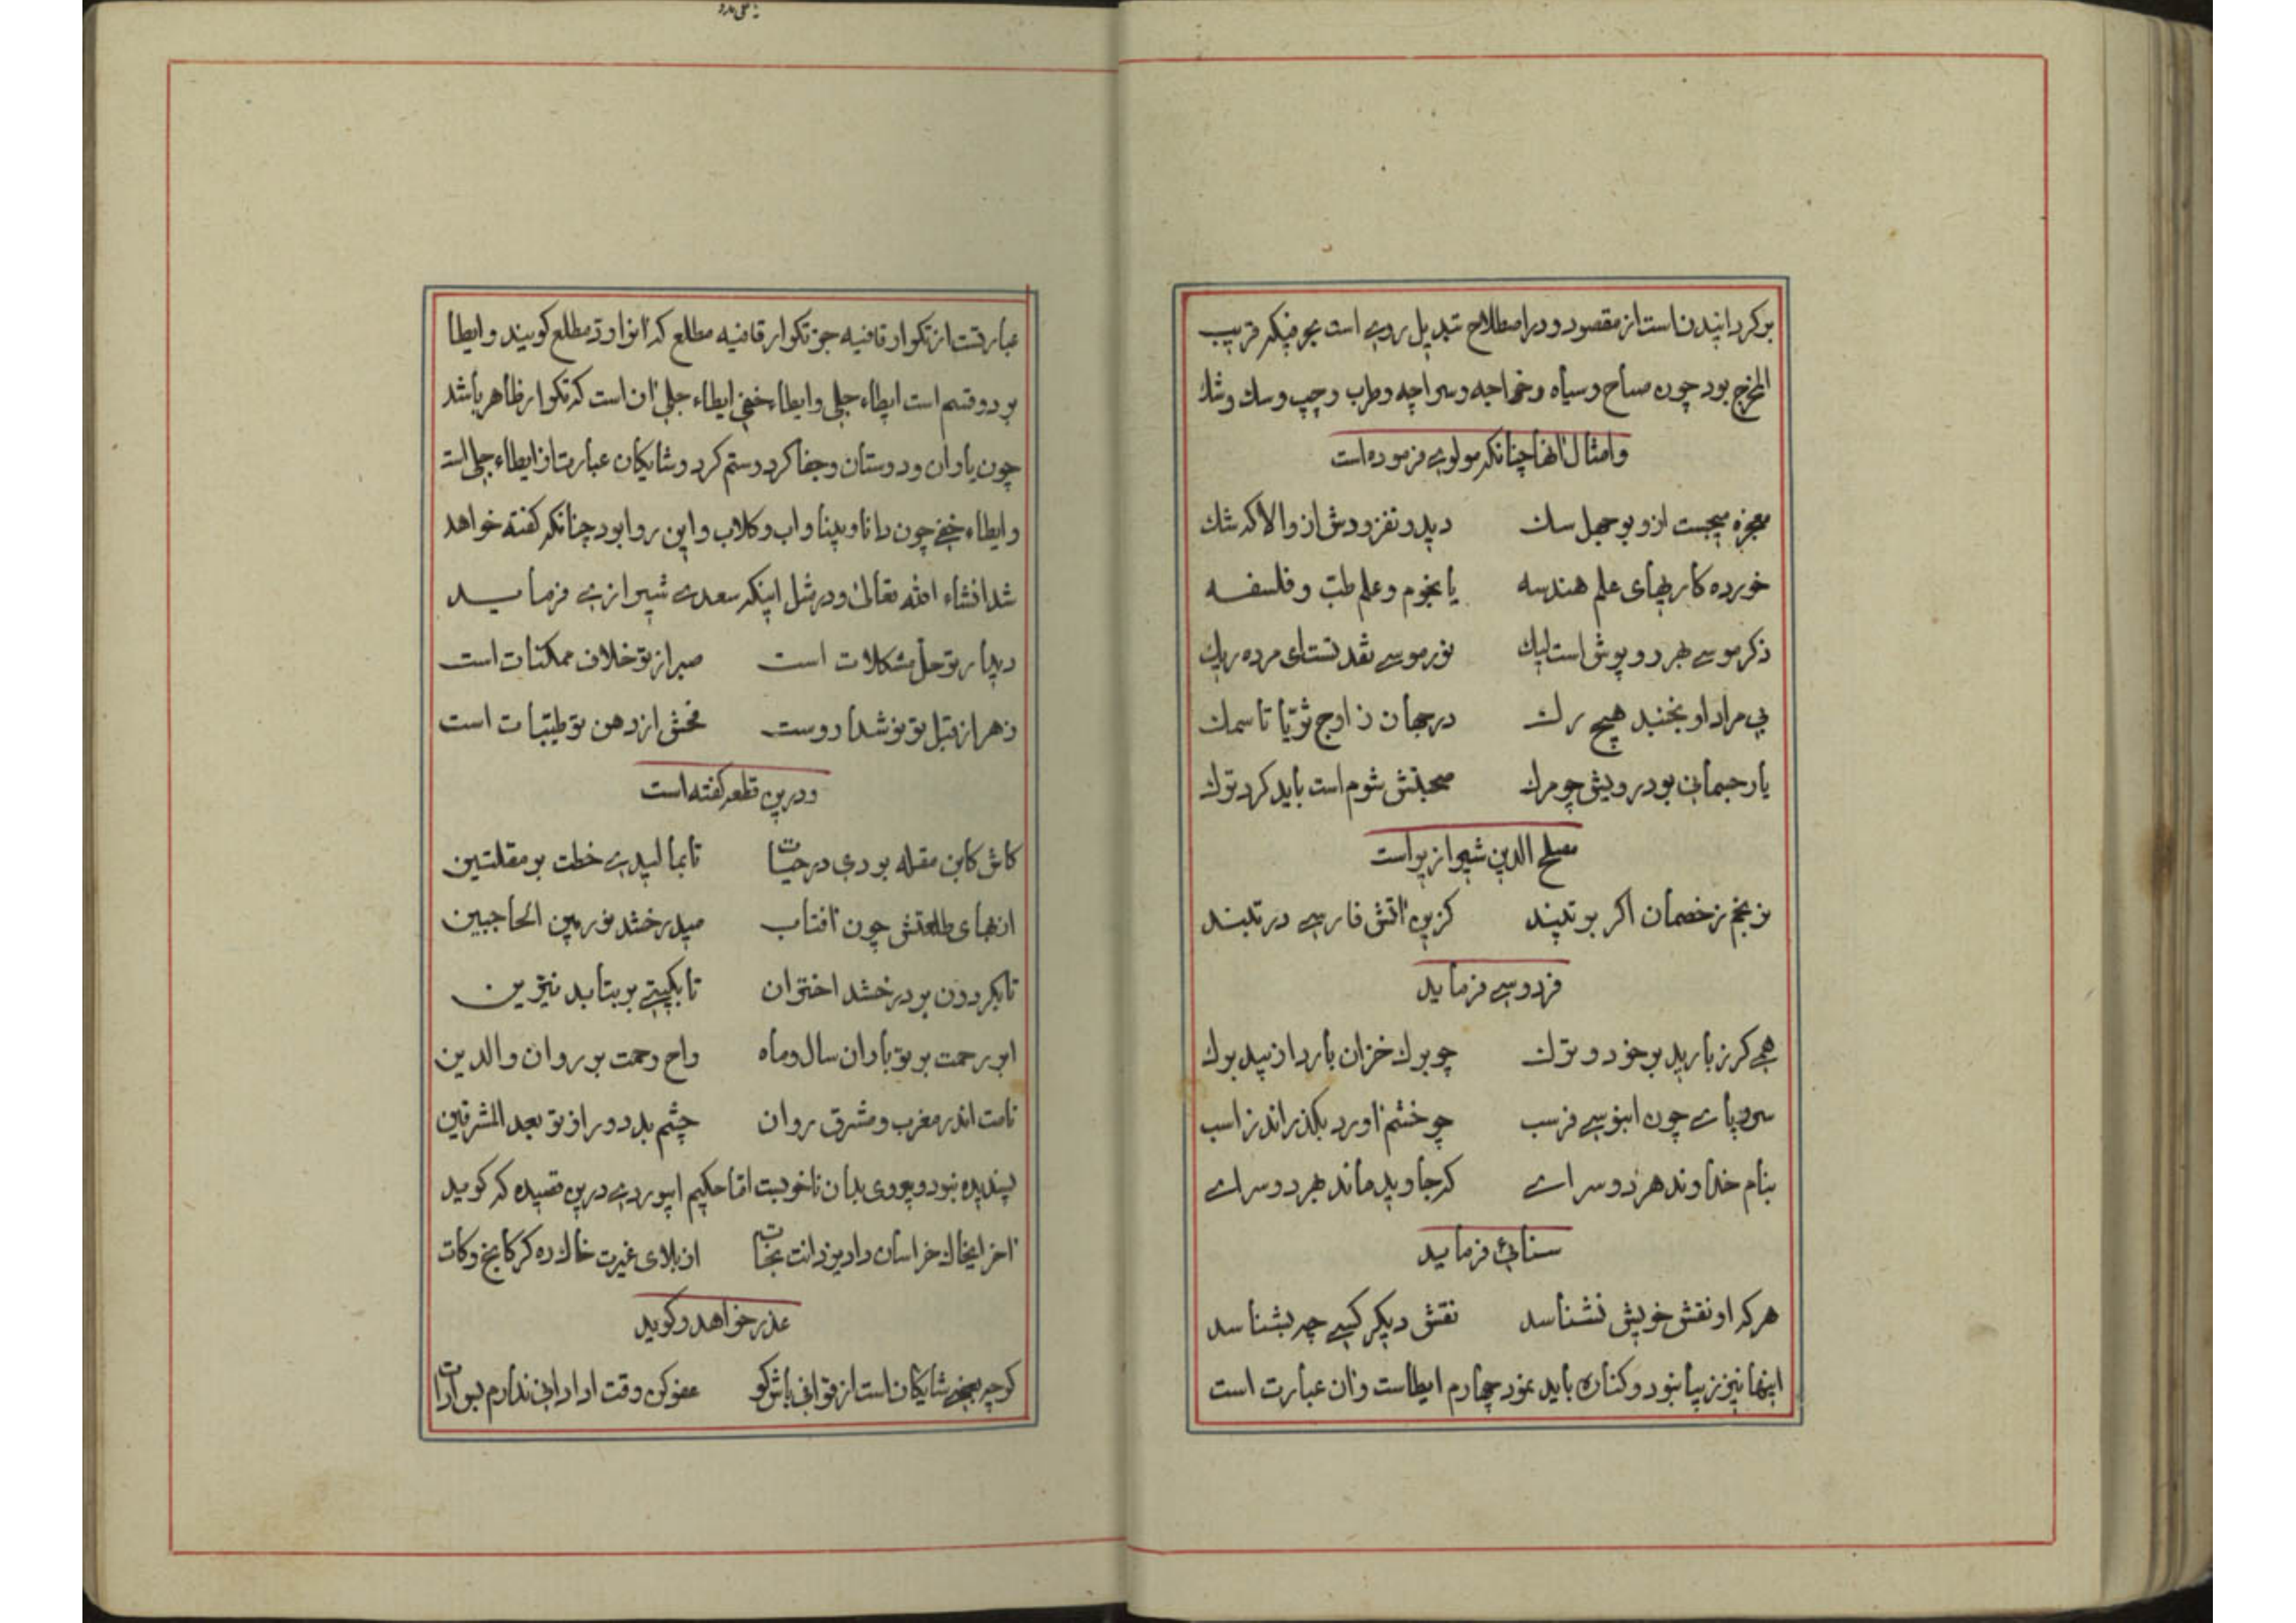 برکردانیدن است از مقصود و در اصطلاح تبدیل روی است بحرفیکه قریب
المخرج بود چون صباح و سیاه و خواجه و سراچه و طرب و چپ و سك و شك
و امثال انها چنانکه مولوی فرموده است
معجزه میجست از و بوجهل سك دید و نفزودش از ان والا که شك
خورده کاریهای علم هندسه یا نجوم و علم طبّ و فلسفه
ذکر موسی بهر روپوش است لیك نور موسی نقد تست ای مرده ریك
بی مراد او نجنبد هیچ رك در جهان ز اوج ثریّا تا سمك
یار جسمانی بود رویش چو مرك صحبتش شوم است باید کرد ترك
مصلح الدین شیرازیراست
نرنجم ز خصمان اکر برتپند کزین آتش فارسی در تبند
فردوسی فرماید
همی کرز بارید بر خود و ترك چو برك خزان بارد از بید برك
سر و پای چون ابنوسی فرسب چو خشم آورد بکذراند ز اسب
بنام خداوند هر دو سرای که جاوید ماند بهر دو سرای
سنائی فرماید
هر که او نقش خویش نشناسد نقش دیکر کسی چه بشناسد
اینها نیز زیبا نبود و کناره باید نمود چهارم ایطاست و ان عبارت است
عبارتست از تکرار قافیه جز تکرار قافیه مطلع که آنرا ردّ مطلع کویند و ایطا
بر دو قسم است ایطاء جلی و ایطاء خفی ایطاء جلی آن است که تکرار ظاهر باشد
چون یاران و دوستان و جفا کرد و ستم کرد و شایکان عبارت از ایطاء جلی است
و ایطاء خفی چون دانا و بینا و اب و کلاب و این روا بود چنانکه کفته خواهد
شد انشاء الله تعالی و در مثل اینکه سعدی شیرازی فرماید
دیدار تو حلّ مشکلات است صبر از تو خلاف ممکنات است
زهر از قبل تو نوشدارواست فحش از دهن تو طیّبات است
و درین قطعه کفته است
کاش کابن مقله بودی در حیات تا بمالیدی خطت بر مقلتین
انبهای طلعتش چون آفتاب میدرخشد نور بین الحاجبین
تا بکردون بر درخشد اختران تا بکیتی بر بتابد نیّرین
ابر رحمت بر تو باران سال و ماه راح رحمت بر روان والدین
نامت اندر مغرب و مشرق روان چشم بد دور از تو بعد المشرقین
پسندیده نبود و پیروی بدان ناخوبست امّا حکیم ابیوردی درین قصیده که کوید
آخر ایخاك خراسان داد یزدانت نجات از بلای غیرت خاك ره کرکانج و کات
عذر خواهد و کوید
کرچه بعضی شایکان است از قوافی باش کو عفو کن وقت ادا دانی ندارم بس ادات